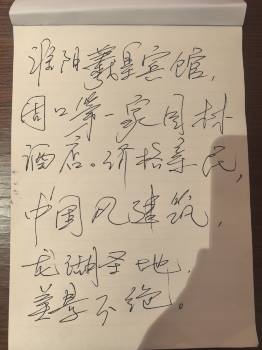 淮阳羲皇宾馆，
周口第一家园林
酒店。价格亲民，
中国风建筑，
龙湖圣地，
美景不绝。